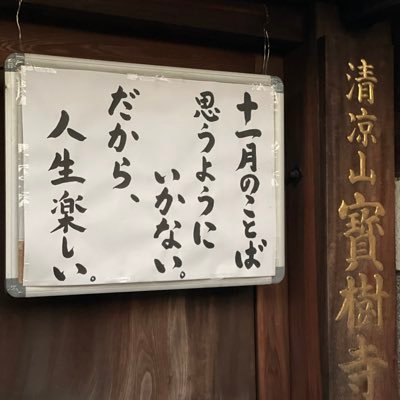 十一月のことば
思うように
いかない。
だから、
人生楽しい。
清凉山寶樹寺